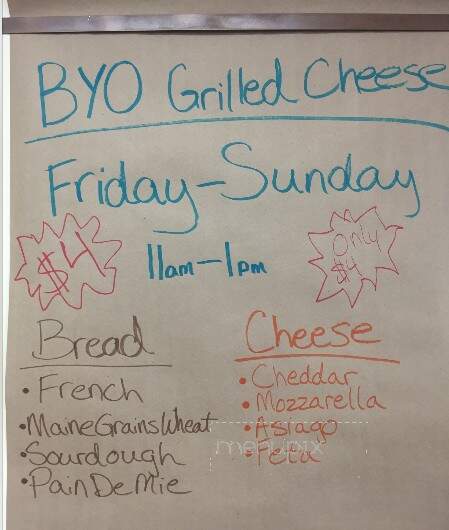 BYO Grilled Cheese
Friday-Sunday
$4
11am-1pm
Only
$4
Bread
• French
• Maine Grains Wheat
• Sourdough
• Pain De Mie
Cheese
• Cheddar
• Mozzarella
• Asiago
• Feta
menupix